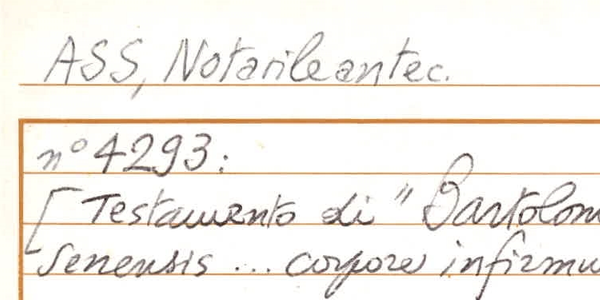 ASS, Notarile antec.
n° 4293:
[Testamento di "Bartolom
Senensis ... corpore infirmu